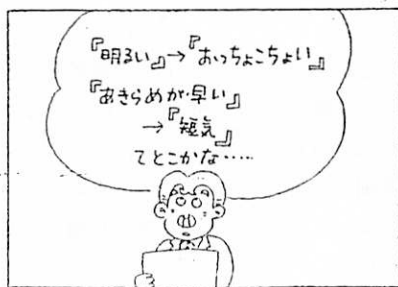 『明るい』→『おっちょこちょい』
『あきらめが早い』
→『短気』
てとこかな……